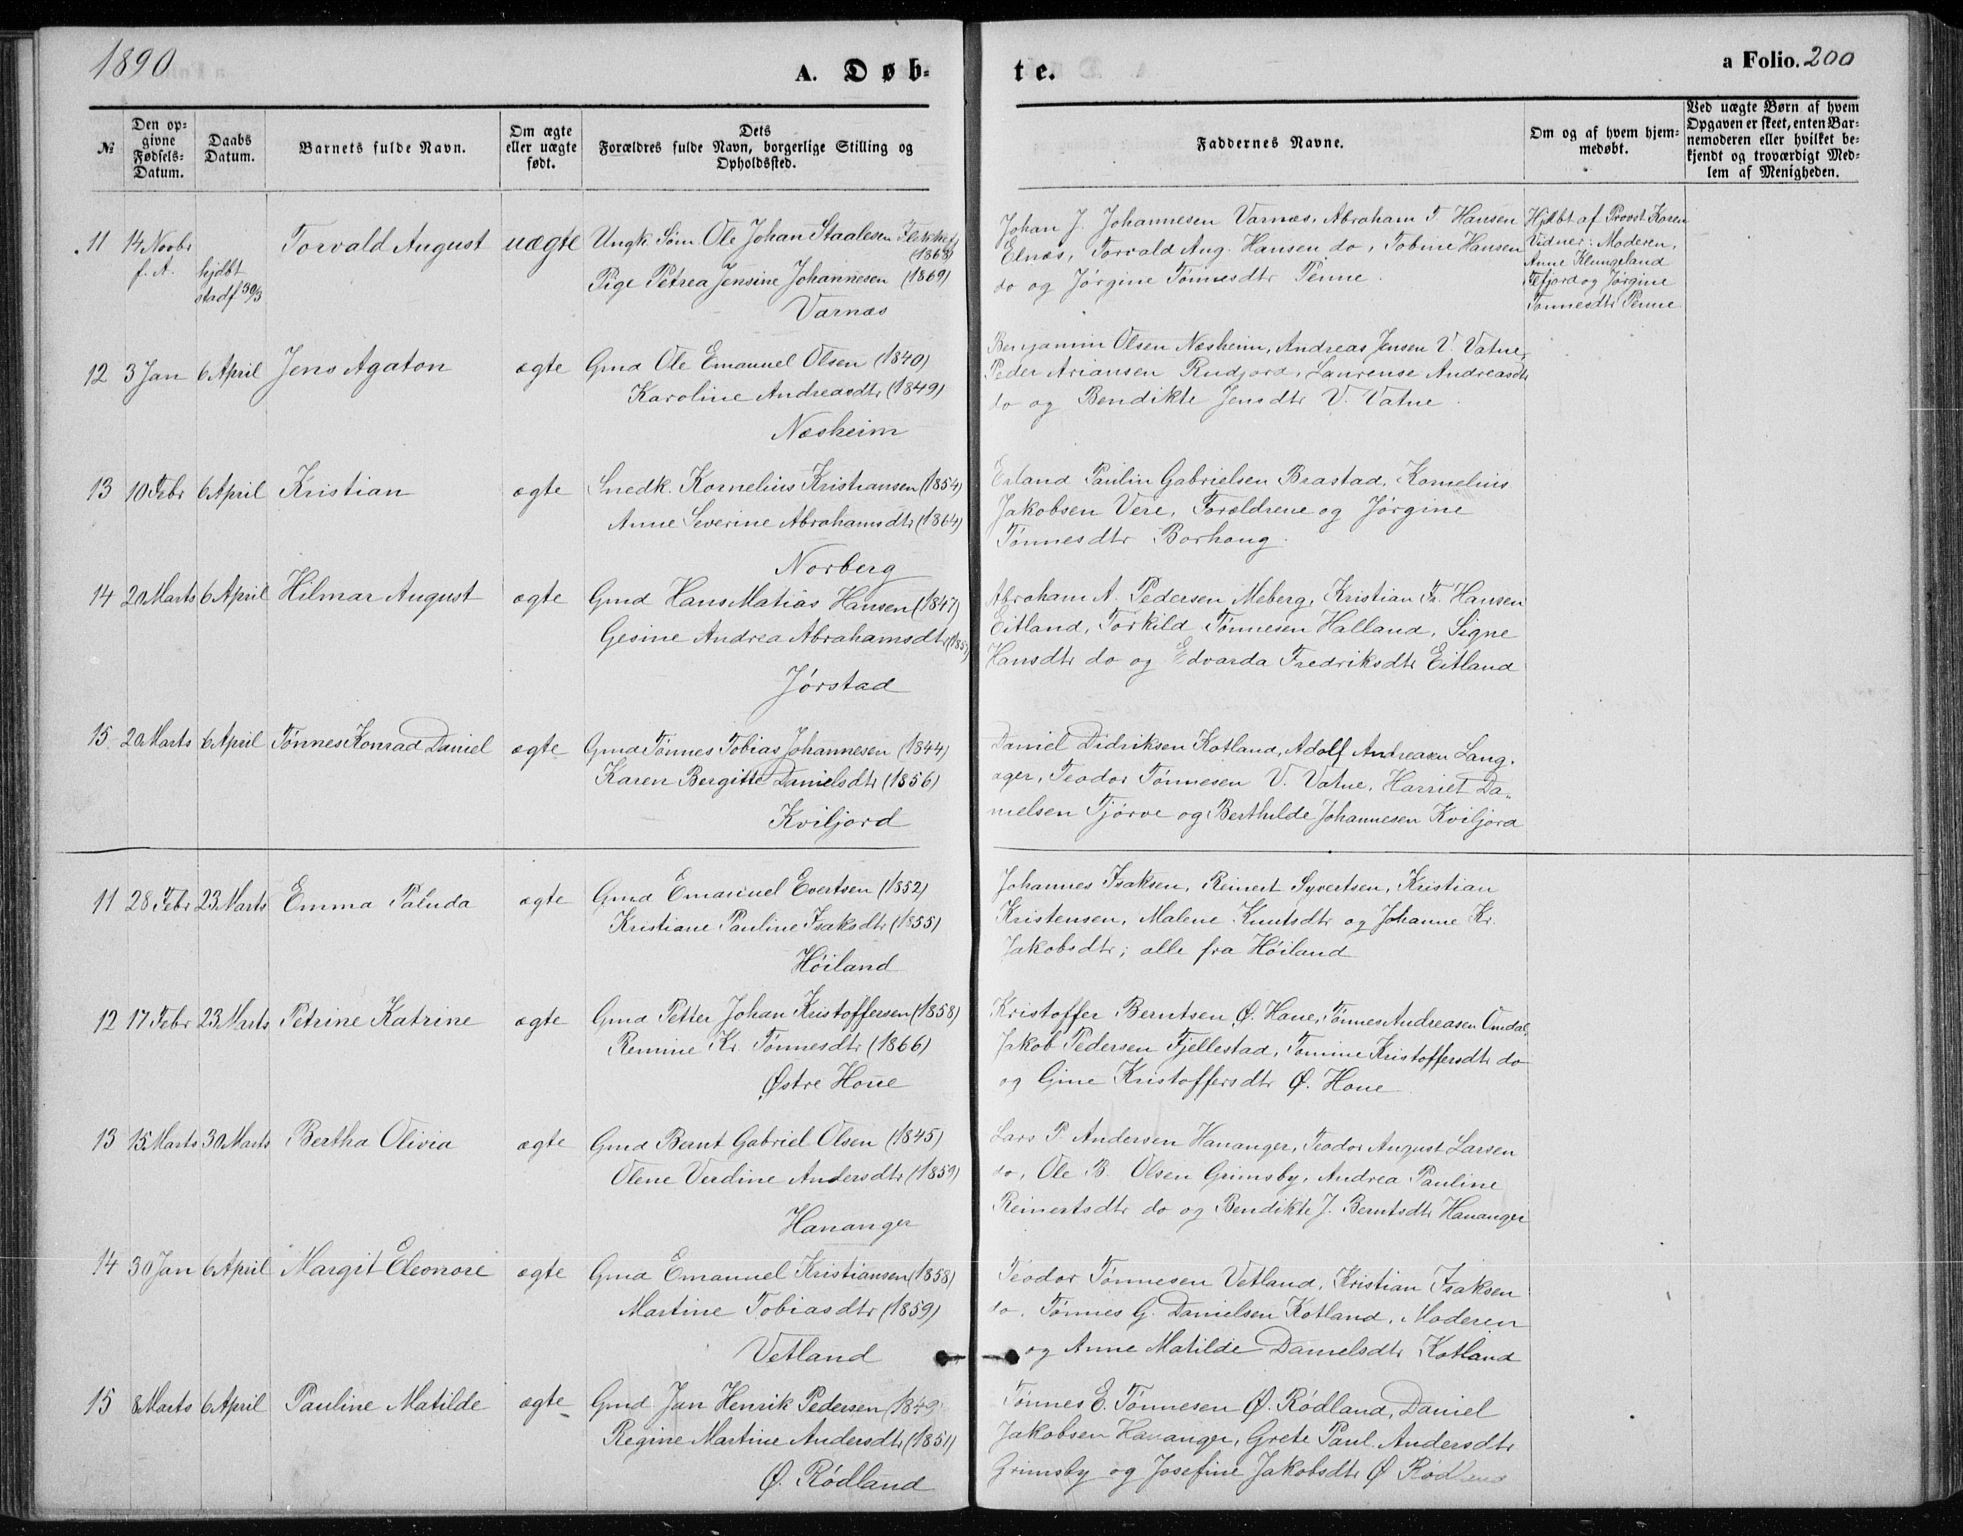 1890
A. Døb-
te.
a Folio. 200
№
Den op-
givne
Fødsels-
Datum.
Daabs
Datum.
Barnets fulde Navn.
Om ægte
eller uægte
født.
Dets
Forældres fulde Navn, borgerlige Stilling og
Opholdssted.
Faddernes Navne.
Om og af hvem hjem-
medøbt.
Ved uægte Børn af hvem
Opgaven er skeet, enten Bar-
nemoderen eller hvilket be-
kjendt og troværdigt Med-
lem af Menigheden.
11 14 Novbr f. A. hjdbt stadf 30/3 Torvald August uægte Ungk. Søm. Ole Johan Staalesen (1868)
Pige Petrea Jensine Johannesen (1869)
Varnæs
Johan J. Johannesen Varnæs, Abraham T Hansen
Elnæs, Torvald Aug. Hansen do, Tobine Hansen
do og Jørgine Tønnesdtr Penne.
Hjdbt af Provst Koren
Vidner: Moderen,
Anne Klungeland
og Jørgine
Tønnesdtr Penne
12 3 Jan 6 April Jens Agaton ægte Gmd Ole Emanuel Olsen (1840)
Karoline Andreasdtr (1849)
Næsheim
Benjamin Olsen Næsheim, Andreas Jensen V. Vatne,
Peder Ariansen Rudjord, Laurense Andreasdtr
do og Bendikte Jensdtr V. Vatne.
13 10 Febr 6 April Kristian ægte Snedk. Kornelius Kristiansen (1854)
Anne Severine Abrahamsdtr (1864)
Norberg
Erland Paulin Gabrielsen Brastad, Kornelius
Jakobsen Vere, Forældrene og Jørgine
Tønnesdtr Borhaug.
14 20 Marts 6 April Hilmar August ægte Gmd Hans Matias Hansen (1847)
Gesine Andrea Abrahamsdtr
Jørstad
Abraham A. Pedersen Meberg, Kristian Fr. Hansen
Eitland, Torkild Tønnesen Halland, Signe
Hansdtr do og Edvarda Fredriksdtr Eitland
15. 20 Marts 6 April Tønnes Konrad Daniel ægte Gmd Tønnes Tobias Johannesen (1844)
Karen Bergitte Danielsdtr (1856)
Kviljord
Daniel Didriksen Kotland, Adolf Andreasen Lang-
ager, Teodor Tønnesen V. Vatne, Harriet Da-
nielsen Tjørve og Berthilde Johannesen Kviljord
11 28 Febr 23 Marts Emma Paluda ægte Gmd Emanuel Evertsen (1852)
Kristiane Pauline Isaksdtr (1855)
Høiland
Johannes Isaksen, Reinert Syvertsen, Kristian
Kristensen, Malene Knutsdtr og Johanne Kr.
Jakobsdtr; alle fra Høiland
12 17 Febr 23 Marts Petrine Katrine ægte Gmd Petter Johan Kristoffersen (1858)
Remine Kr. Tønnesdtr (1866)
Østre Houe
Kristoffer Berntsen Ø. Haue, Tønnes Andreasen Omdal,
Jakob Pedersen Fjellestad, Tomine Kristoffersdtr do
og Gine Kristoffersdtr Ø. Houe.
13 15 Marts 30 Marts Bertha Olivia ægte Gmd Bernt Gabriel Olsen (1845)
Olene Verdine Andersdtr (1859)
Hananger
Lars P. Andersen Hananger, Teodor August Larsen
do, Ole B. Olsen Grimsby, Andrea Pauline
Reinertsdtr do og Bendikte J. Berntsdtr Hananger
14 30 Jan 6 April Margit Eleonore ægte Gmd Emanuel Kristiansen (1858)
Martine Tobiasdtr (1859)
Vetland
Teodor Tønnesen Vetland, Kristian Isaksen
do, Tønnes G. Danielsen Kotland, Moderen
og Anne Matilde Danielsdtr Kotland
15 8 Marts 6 April Pauline Matilde ægte Gmd Jan Henrik Pedersen (1849)
Regine Martine Andersdtr (1851)
Ø. Rødland
Tønnes E. Tønnesen Ø. Rødland, Daniel
Jakobsen Hananger, Grete Paul. Andersdtr
Grimsby og Josefine Jakobsdtr Ø Rødland